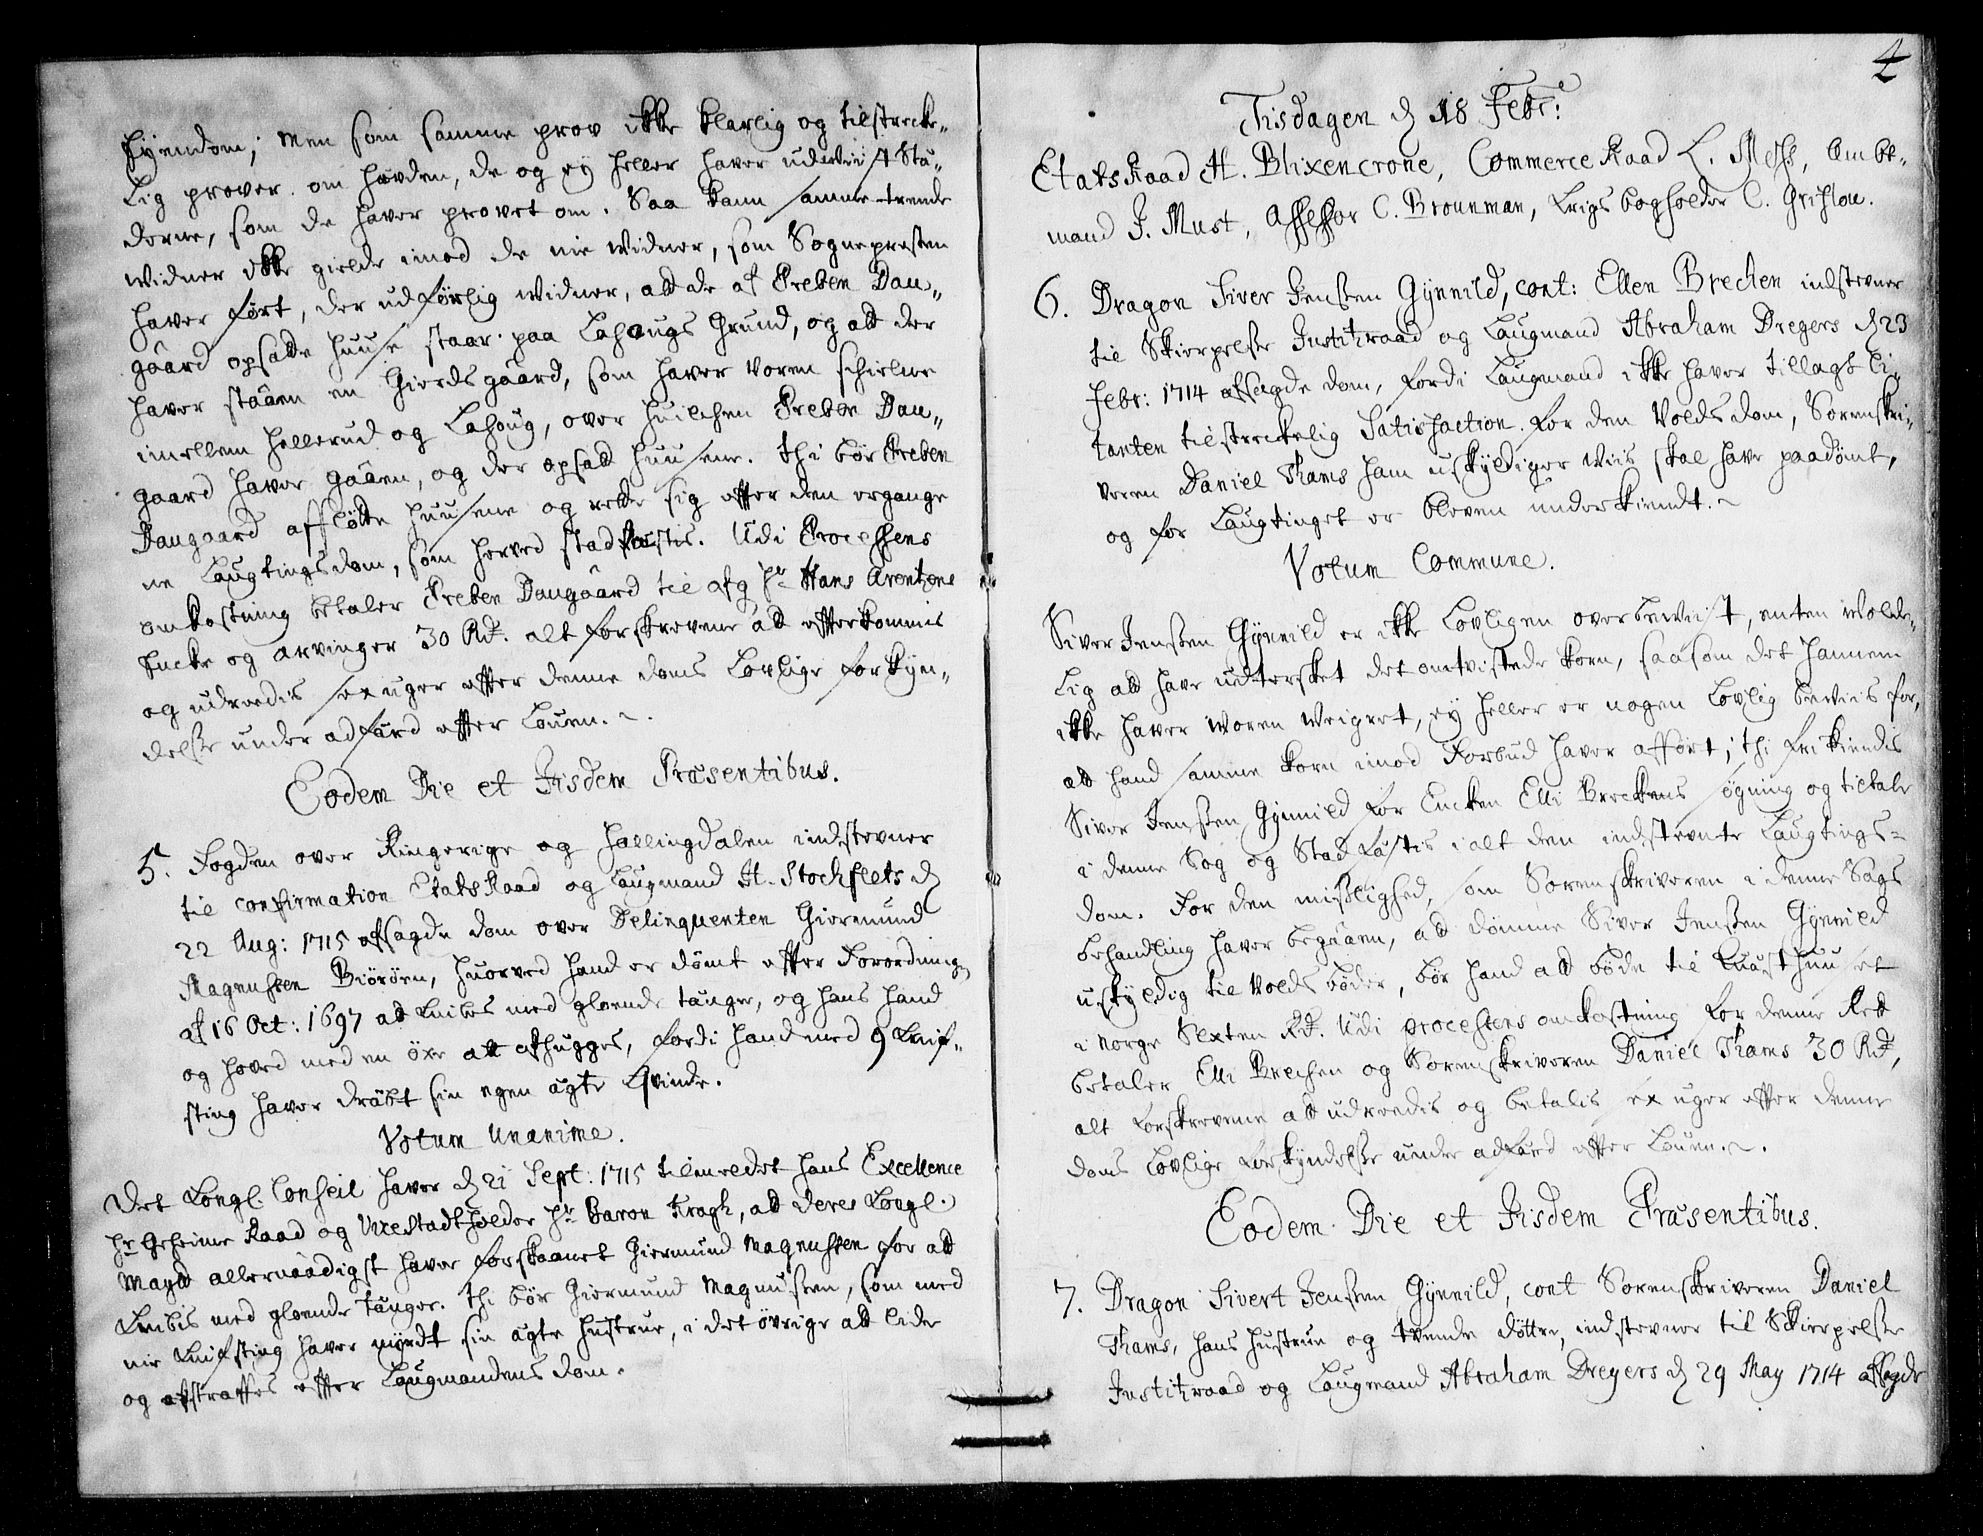 Eyendom; Men som samme prov ikke klarlig og tilstrecke„
lig prover om høvden, de og ey heller haver udviist stæ„
derne, som de haver provet om. Saa kann samme trende
widner ikke gielde imod de nie widner, som Sognepresten
haver ført, der udførlig widner, att de af Preben Dau„
gaard opsatte huuse staar paa Lahougs Grund, og att der
haver staaen en Giærdsgaard, som haver voren schielne
imellem Hellerud og Lahoug, over huilchen Preben Dau„
gaard haver gaaen, og der opsatt huusene. Thi bør Preben
Daugaard affløtte huusene og rette sig effter den ergange
ne Laugtingsdom, som herved stadfæstis. Udi Processens
omkostning betaler Preben Daugaard til afg Hr Hans Arentzens
Encke og arvinger 30 Rd. alt forskrevne att efterkommis
og udredis sex uger effter denne doms Lovlige forkyn„
delse under adfærd effter Loven.
Eodem Die et Iisdem Præsentibus.
5. Fogden over Ringerige og Hallingdalen indstevner
til confirmation EtatsRaad og Laugmand H. Stochflets d
22 Aug: 1715 afsagde dom over Delinquenten Giermund
Magnussen Biørøen, huorved hand er dømt effter Forordning
af 16 Oct: 1697 at knibes med gloende tanger, og hans hand
og hoved med en øxe att afhugges, fordi hand med 9 knif„
sting haver dræbt sin egen ægte Qvinde.
Votum Unanime.
Det Kongl. Conseil haver d 21 Sept: 1715 tilmeldet hans Excellence
Hr Geheime Raad og Vicestadtholder Hr Baron Kragh, att deres Kongl.
Maytt allernaadigst haver forskaanet Giermund Magnussen for att
knibis med gloende tanger. Thi bør Giermund Magnussen, som med
nie knifsting haver myrdt sin ægte hustrue, i det øvrige att lide
og afstraffes effter Laugmandens dom.
4
Tisdagen d 18 Febr:
EtatsRaad H. Blixencrone, CommerceRaad L. Mess, Ambt„
mand J. Must, Assessor C. Brounman, Krigs bogholder C. Grislou.
6. Dragon Siver Jenssen Gynnild, cont: Ellen Brechen indstevner
til Skierpelse Justitzraad og Laugmand Abraham Dreyers d 23
Febr: 1714 afsagde dom, fordi Laugmand ikke haver tillagt Ci„
tanten tilstreckelig Satisfaction for den Voldsdom, Sorenskri„
veren Daniel Thams ham uskyldiger viis skal have paadømt,
og for Laugtinget er bleven underkiendt.
Votum Commune.
Siver Jenssen Gynnild er ikke Lovligen overbeviist, enten Volde„
lig att have udtersket det omtvistede korn, saasom det hannem
ikke haver voren veigret, ey heller er nogen Lovlig beviis for,
att hand samme korn imod Forbud haver afført; thi frikiendis
Siver Jenssen Gynnild for Encken Elli Brechens søgning og tiltale
i denne Sag og Stadfæstis i alt den indstevnte Laugtings=
dom. For den misslighed, som Sorenskriveren i denne Sags
behandling haver begaaen, att dømme Siver Jenssen Gynnild
uskyldig til Voldsbøder, bør hand att bøde til Quæsthuuset
i Norge Sexten Rd. Udi processens omkostning for denne Rett
betaler Elli Brechen og Sorenskriveren Daniel Thams 30 Rd,
alt forskrevne att udredis og betalis sex uger effter denne
doms lovlige forkyndelse under adfærd effter Loven.
Eodem Die et Iisdem Præsentibus.
7. Dragon Sivert Jenssen Gynnild, cont Sorenskriveren Daniel
Thams, hans hustrue og tvende døttre, indstevner til Skierpelse
Justitzraad og Laugmand Abraham Dreyers d 29 May 1714 afsagde